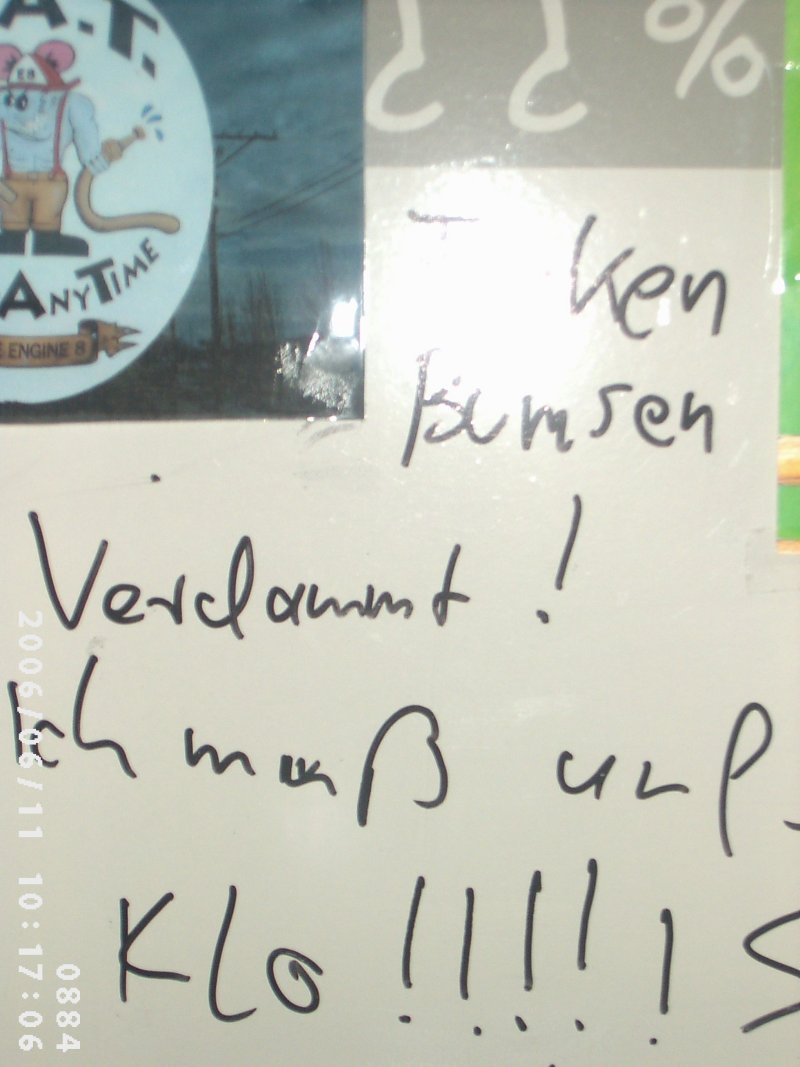 A.T.
ANYTIME
ENGINE 8
? ? %
ken
Bumsen
Verdammt !
Ich muß auf
Klo !!!!!
2006/06/11 10:17:06
0884